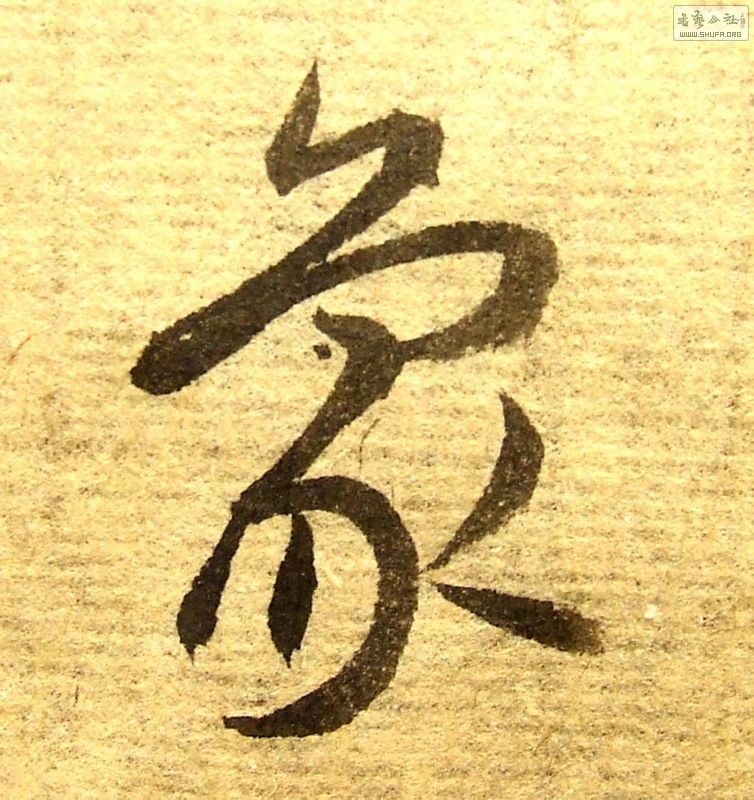 象
書艺公社
WWW.SHUFA.ORG